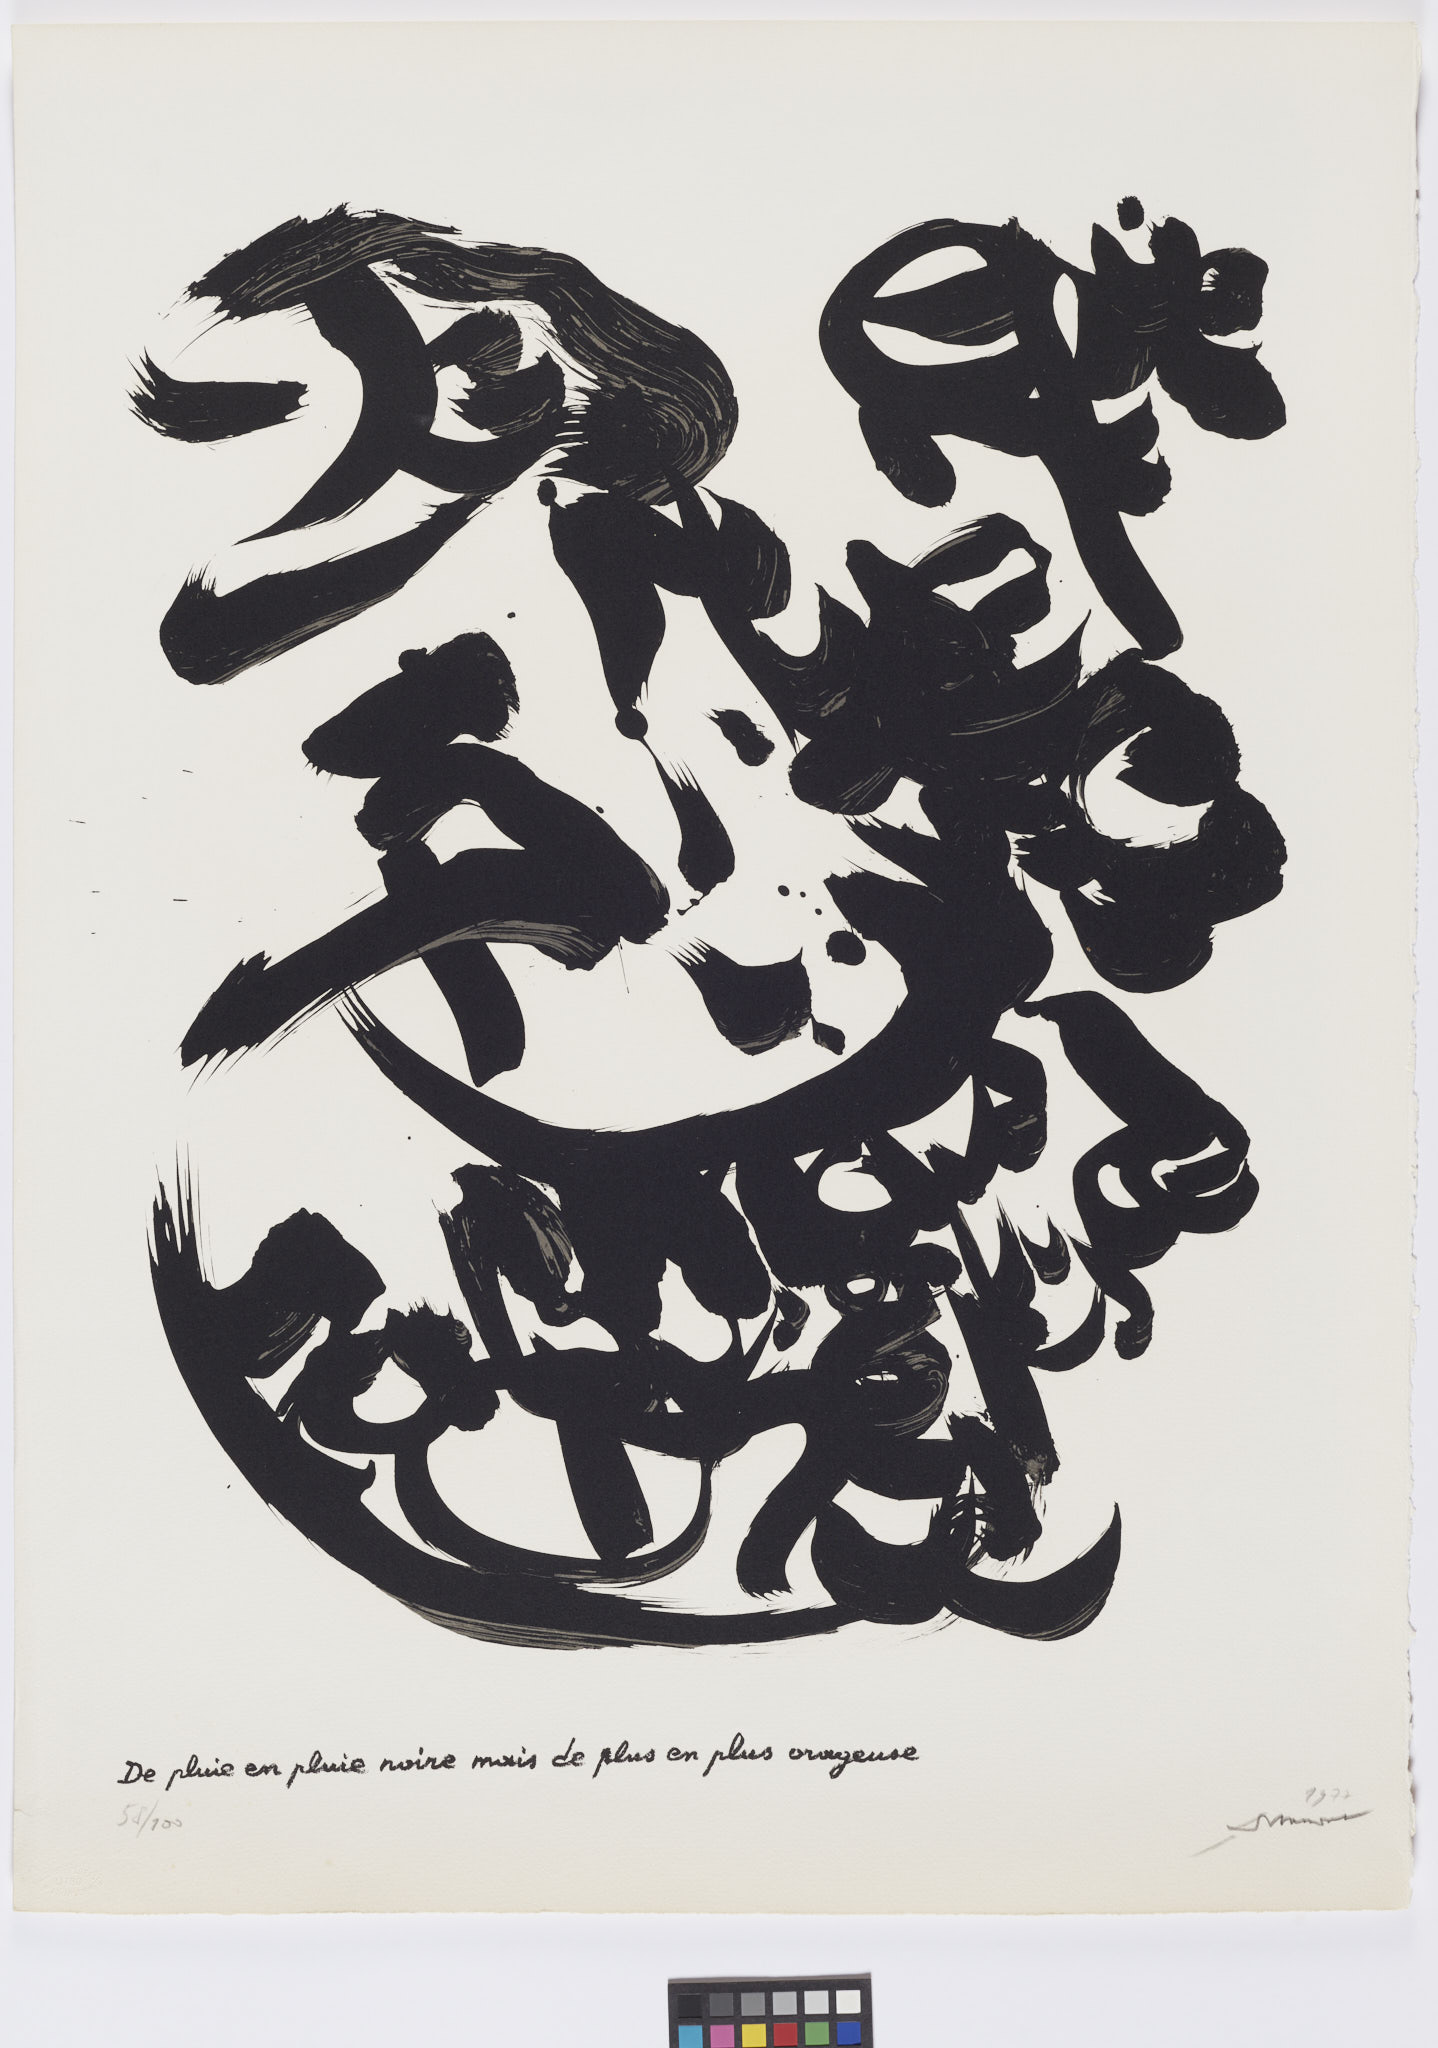 De pluie en pluie noire mais de plus en plus orageuse
55/100
1977